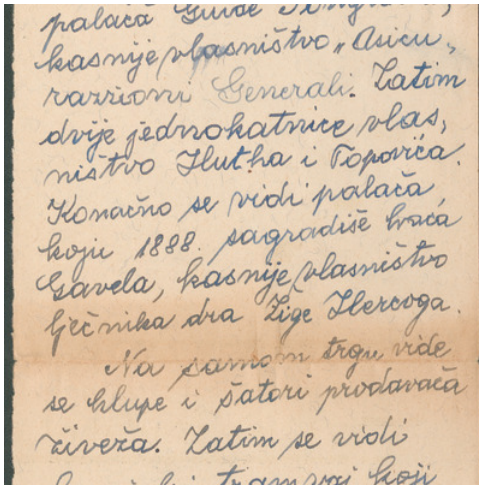 palača Guide
kasnije vlasništvo „Asicu,
razzioni Generali. Zatim
dvije jednokatnice vlas,
ništvo Hutha i Popovića.
Konačno se vidi palača,
koju 1888. sagradiše braća
Gavela, kasnije vlasništvo
lječnika dra Žige Hercoga.
Na samom trgu vide
se klupe i šatori prodavača
živeža. Zatim se vidi
tramvaj koji